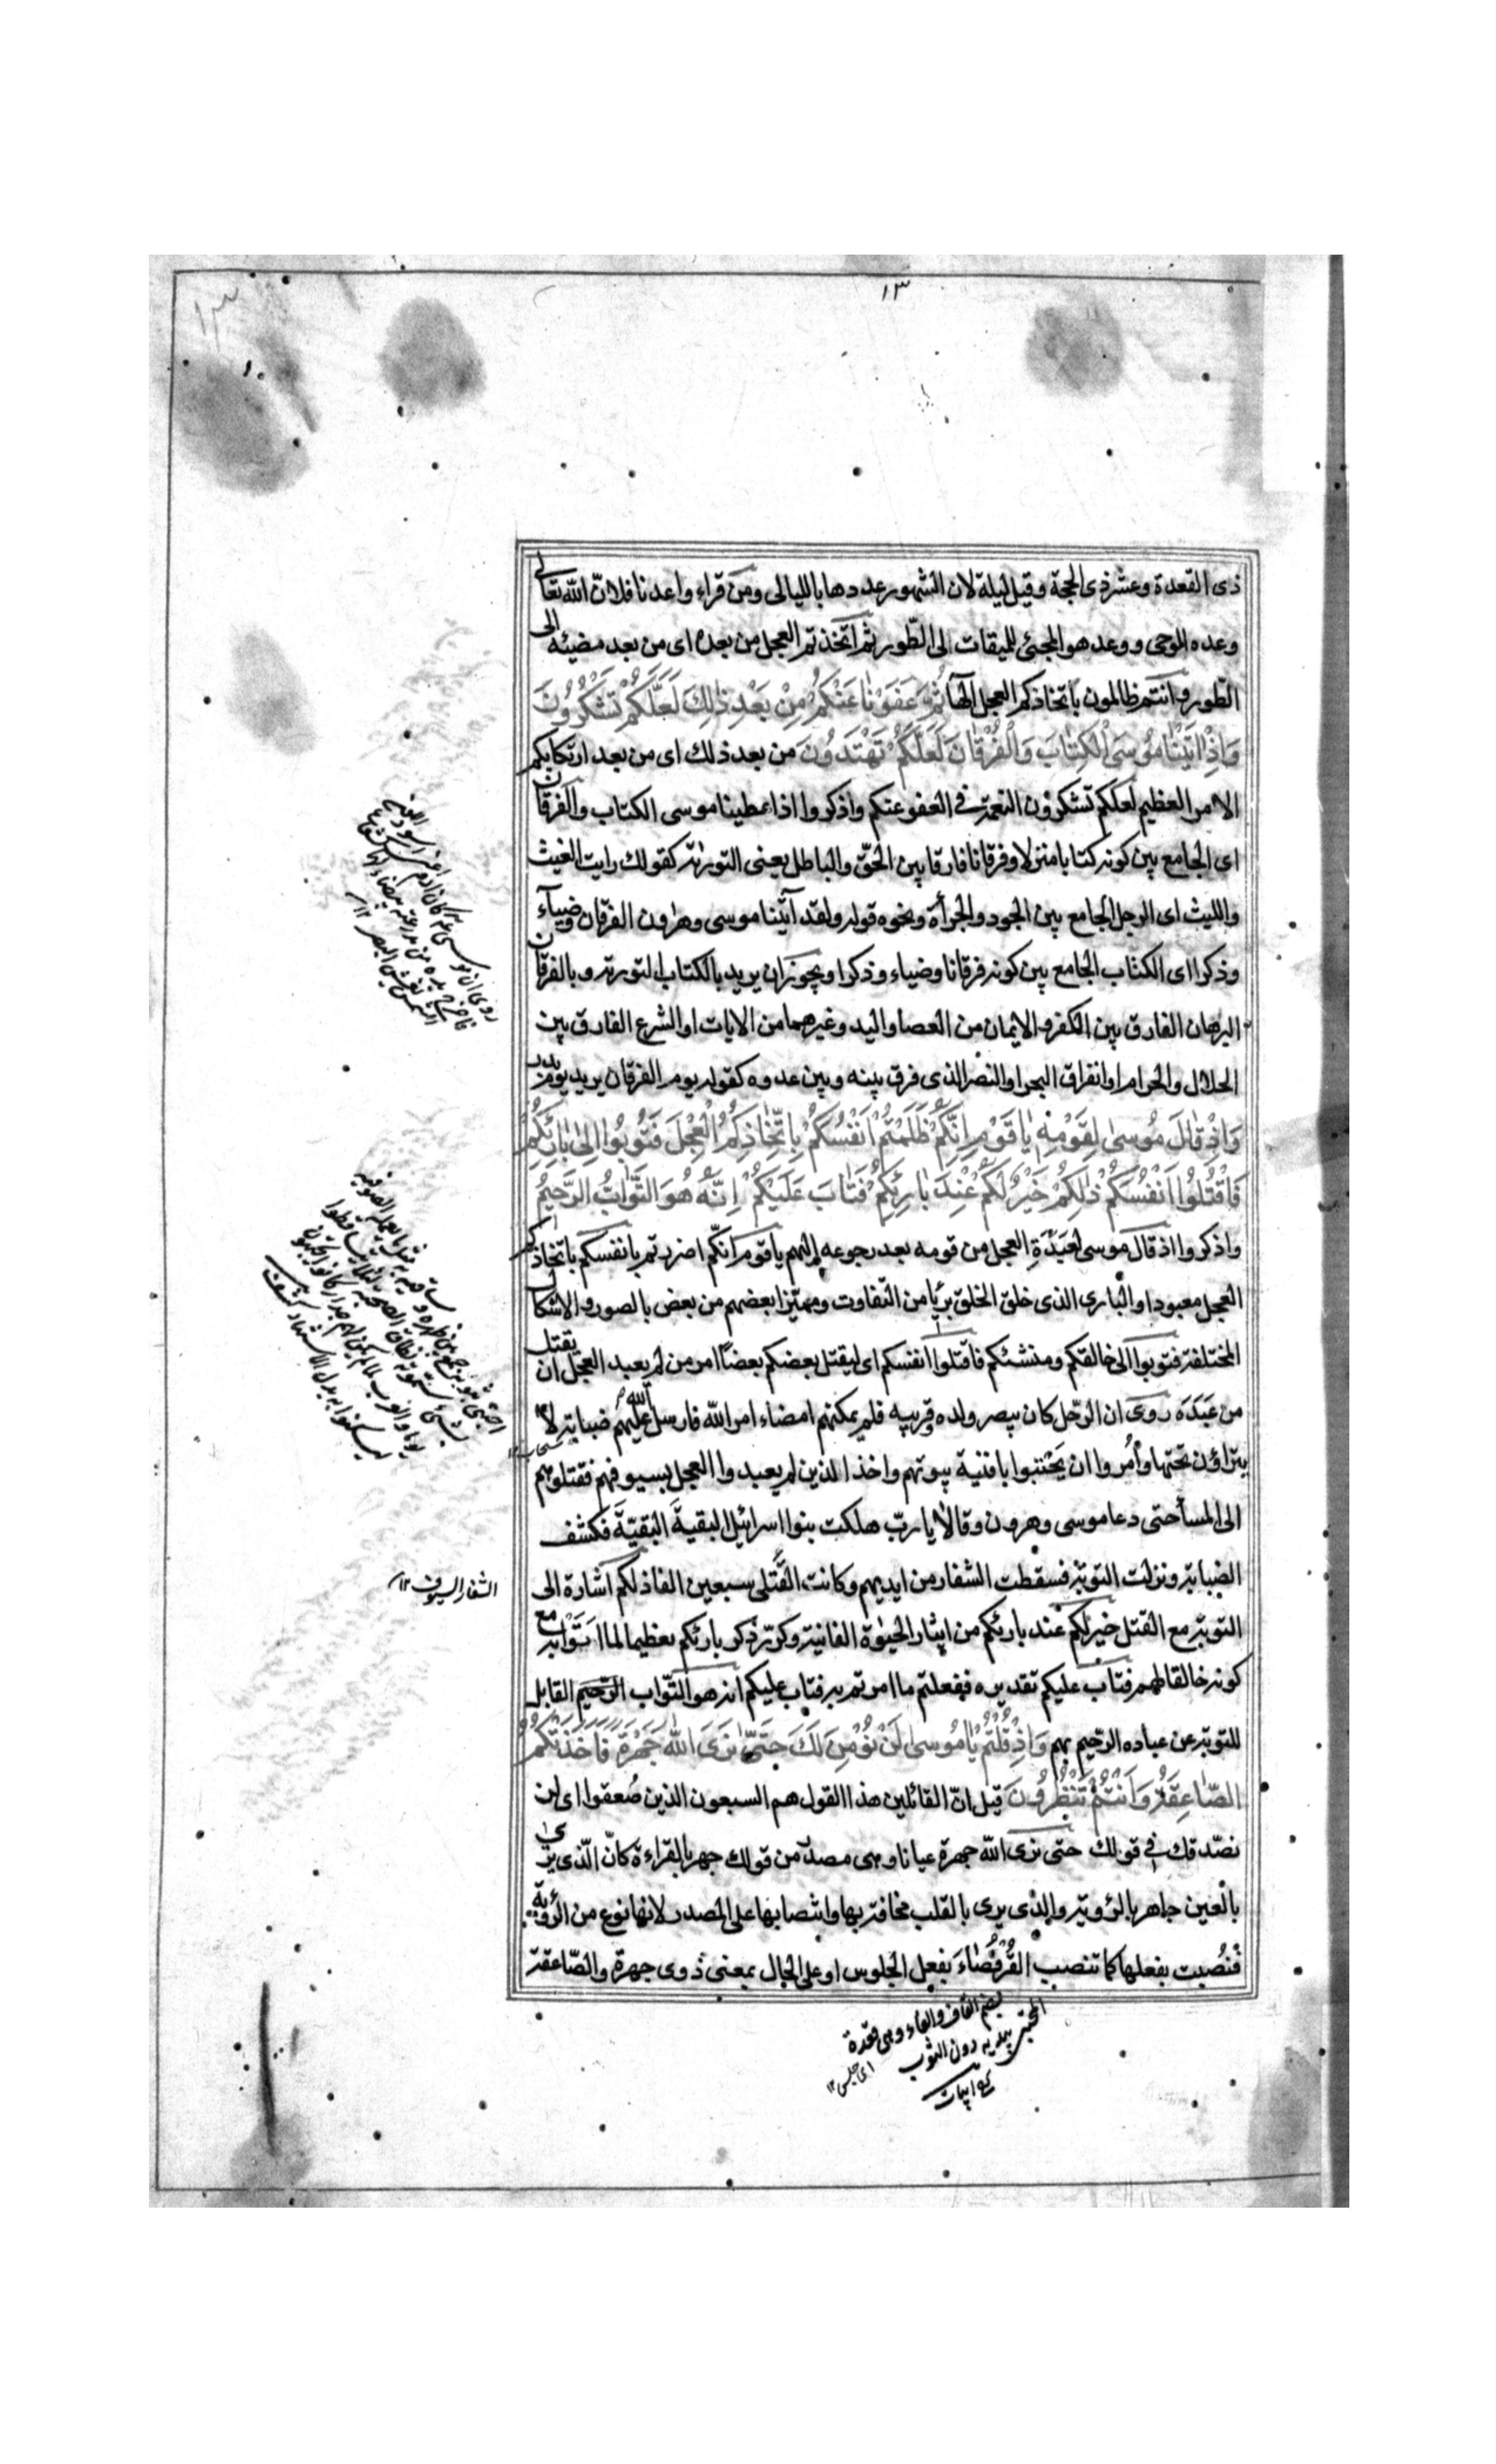 ١٣
ذى القعدة وعشر ذى الحجة وقيل ليلة لان الشهور عددها بالليالى ومن قراء واعدنا فلان الله تعالى
وعده الوحى ووعد هو المجئ للميقات الى الطور ثم اتخذتم العجل من بعده اى من بعد مضيّه الى
الطور وانتم ظالمون باتخاذكم العجل الها ثُمَّ عَفَوْنَا عَنْكُمْ مِنْ بَعْدِ ذٰلِكَ لَعَلَّكُمْ تَشْكُرُونَ
وَاِذْ اٰتَيْنَا مُوسَى الْكِتَابَ وَالْفُرْقَانَ لَعَلَّكُمْ تَهْتَدُونَ من بعد ذلك اى من بعد ارتكابكم
الامر العظيم لعلكم تشكرون النعمة فى العفو عنكم واذكروا اذ اعطينا موسى الكتاب والفرقان
اى الجامع بين كونه كتابا منزلا وفرقانا فارقا بين الحقّ والباطل يعنى التورٰية كقولك رايت الغيث
والليث اى الرجل الجامع بين الجود والجرأة ونحوه قوله ولقد آتينا موسى وهٰرون الفرقان وضياء
وذكرا اى الكتاب الجامع بين كونه فرقانا وضياء وذكرا ويجوز ان يريد بالكتاب التورية وبالفرقان
البرهان الفارق بين الكفر والايمان من العصا واليد وغيرهما من الايات او الشرع الفارق بين
الحلال والحرام او انفراق البحر او النصر الذى فرق بينه وبين عدوه كقوله يوم الفرقان يريد يوم بدر
وَاِذْ قَالَ مُوسىٰ لِقَوْمِهٖ يَا قَوْمِ اِنَّكُمْ ظَلَمْتُمْ اَنْفُسَكُمْ بِاتِّخَاذِكُمُ الْعِجْلَ فَتُوبُوا اِلىٰ بَارِئِكُمْ
فَاقْتُلُوا اَنْفُسَكُمْ ذٰلِكُمْ خَيْرٌ لَكُمْ عِنْدَ بَارِئِكُمْ فَتَابَ عَلَيْكُمْ اِنَّهُ هُوَ التَّوَّابُ الرَّحِيمُ
واذكروا اذ قال موسى لعَبَدَةِ العجل من قومه بعد رجوعه اليهم يا قوم انكّم اضررتم بانفسكم باتخاذكم
العجل معبودا والبارى الذى خلق الخلق بريًا من التفاوت ومميّزا بعضهم من بعض بالصور والاشكال
المختلفة فتوبوا الى خالقكم ومنشئكم فاقتلوا انفسكم اى ليقتل بعضكم بعضًا امر من لم يعبد العجل ان يقتل
من عَبَدَه روى ان الرجل كان يبصر ولده وقريبه فلم يمكنهم امضاء امر الله فارسل الله عليهم ضبابة لا
يتراؤن تحتها وأُمروا ان يَحْتبوا بافنية بيوتهم واخذ الذين لم يعبدوا العجل بسيوفهم فقتلوهم
الى المسا حتى دعا موسى وهرون وقالا يا ربّ هلكت بنوا اسرائيل البقيةَ البقيّةَ فكشف
الضبابة ونزلت التوبة فسقطت الشفار من ايديهم وكانت القَتْلى سبعين الفا ذلكم اشارة الى
التوبة مع القتل خير لكم عند بارئكم من ايثار الحيٰوة الفانية وكرّر ذكر بارئكم تعظيما لما اتَوْا به مع
كونه خالقا لهم فتاب عليكم تقديره ففعلتم ما امرتم به فتاب عليكم انه هو التوّاب الرّحيم القابل
للتوبة عن عباده الرّحيم بهم وَاِذْ قُلْتُمْ يَا مُوسىٰ لَنْ نُؤْمِنَ لَكَ حَتّىٰ نَرَى اللهَ جَهْرَةً فَاَخَذَتْكُمُ
الصَّاعِقَةُ وَاَنْتُمْ تَنْظُرُونَ قيل انّ القائلين هذا القول هم السبعون الذين صُعقوا اى لن
نصدّقك فى قولك حتى نرى الله جهرة عيانا وهى مصدر من قولك جهر بالقراءة كانّ الّذى يرى
بالعين جاهر بالرؤية والذى يرى بالقلب مخافت بها وانتصابها على المصدر لانها نوع من الرؤية
فنُصبت بفعلها كما تنصب القُرفُصَاءَ بفعل الجلوس او على الحال بمعنى ذوى جهرة والصّاعقة
سحاب ١٢
الشفار السيوف ١٢
بضم القاف والفاء وهى قعدة
المحتبى بيديه دون الثوب
اى جلس ١٢